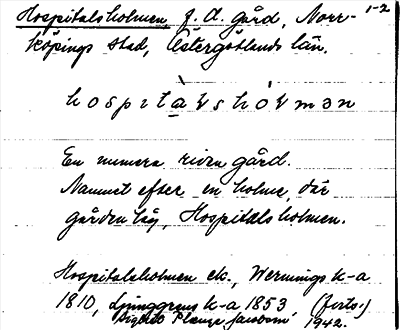 Hospitalsholmen, f. d. gård, Norr- 1-2
köpings stad, Östergötlands län.
hospitạ̀lshólmən
En numera riven gård.
Namnet efter en holme, där
gården låg, Hospitalsholmen.
Hospitalsholmen ek., Wernings k-a
1810, Ljunggrens k-a 1853, (forts.)
1942.